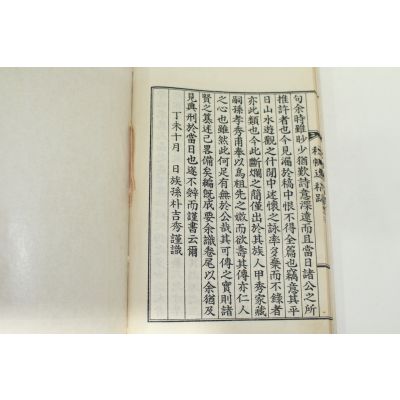 句余時雖眇少猶歎詩意深遠而且當日諸公之所
推許者也今見漏於稿中恨不得全篇也竊意其平
日山水遊觀之什閒中述懷之詠率多棄而不錄者
亦此類也今此斷爛之簡僅出於其族人甲秀家藏
嗣孫孝秀甫奉以爲祖先之徽而欲壽其傳亦仁人
之心也雖然此何足有無於公哉其可傳之實則諸
賢之纂述已畧備矣編旣成要余識卷尾以余猶及
見典刑於當日也遂不辭而謹書云爾
丁未十月 日族孫朴吉秀謹識